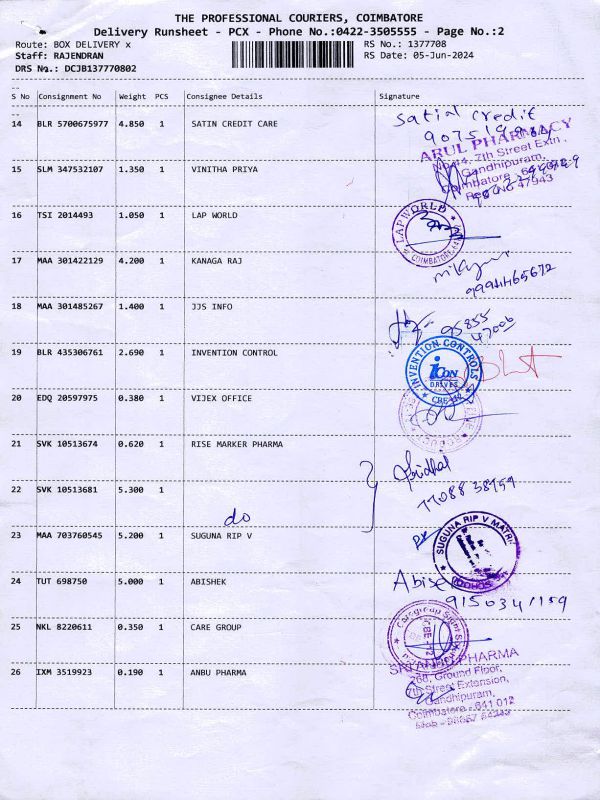 THE PROFESSIONAL COURIERS, COIMBATORE
Delivery Runsheet - PCX - Phone No.:0422-3505555 - Page No.:2
Route: BOX DELIVERY x
RS No.: 1377708
Staff: RAJENDRAN
RS Date: 05-Jun-2024
DRS No.: DCJB137770802
S No Consignment No Weight PCS Consignee Details Signature
14 BLR 5700675977 4.850 1 SATIN CREDIT CARE
Satin Credit
ARUL PHARMACY
No.44, 7th Street Extn,
Gandhipuram,
Coimbatore
Reg. No 47943
15 SLM 347532107 1.350 1 VINITHA PRIYA
16 TSI 2014493 1.050 1 LAP WORLD
LAP WORLD
COIMBATORE
17 MAA 301422129 4.200 1 KANAGA RAJ
9994465672
18 MAA 301485267 1.400 1 JJS INFO
95855
47006
19 BLR 435306761 2.690 1 INVENTION CONTROL
INVENTION CONTROLS
iCON
DRIVES
20 EDQ 20597975 0.380 1 VIJEX OFFICE
21 SVK 10513674 0.620 1 RISE MARKER PHARMA
22 SVK 10513681 5.300 1
77088 38959
do
23 MAA 703760545 5.200 1 SUGUNA RIP V
SUGUNA RIP V MATRI
24 TUT 698750 5.000 1 ABISHEK
Abise
9150341159
25 NKL 8220611 0.350 1 CARE GROUP
CBE-12
26 IXM 3519923 0.190 1 ANBU PHARMA
PHARMA
268, Ground Floor,
7th Street Extension,
Gandhipuram,
Coimbatore - 641 012